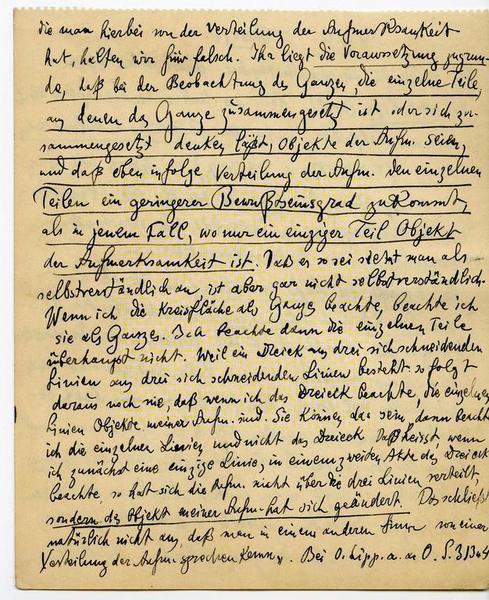 die man hierbei von der Verteilung der Aufmerksamkeit
hat, halten wir für falsch. Ihr liegt die Voraussetzung zugrun-
de, daß bei der Beobachtung des Ganzen, die einzelne Teile,
aus denen das Ganze zusammengesetzt ist oder sich zu-
sammengesetzt denken läßt, Objekte der Aufm. seien,
und daß eben infolge Verteilung der Aufm. den einzelnen
Teilen ein geringerer Bewußtseinsgrad zukommt,
als in jenem Fall, wo nur ein einziger Teil Objekt
der Aufmerksamkeit ist. Daß es so sei sieht man als
selbstverständlich an, ist aber gar nicht selbstverständlich.
Wenn ich die Kreisfläche als Ganze beachte, beachte ich
sie als Ganze. Ich beachte dann die einzelnen Teile
überhaupt nicht. Weil ein Dreieck aus drei sich schneidenden
Linien aus drei sich schneidenden Linien besteht so folgt
daraus noch nie, daß wenn ich das Dreieck beachte, die einzelnen
Linien Objekte meiner Aufm. sind. Sie können das sein, dann beachte
ich die einzelnen Linien und nicht das Dreieck. Das heisst, wenn
ich zunächst eine einzige Linie, in einem zweiten Akte das Dreieck
beachte, so hat sich die Aufm. nicht über die drei Linien verteilt,
sondern das Objekt meiner Aufm. hat sich geändert. Das schließt
natürlich nicht aus, daß man in einem anderen Sinne von einer
Verteilung der Aufm. sprechen kann. Bei O. Lipp. a. a. O. S. 313